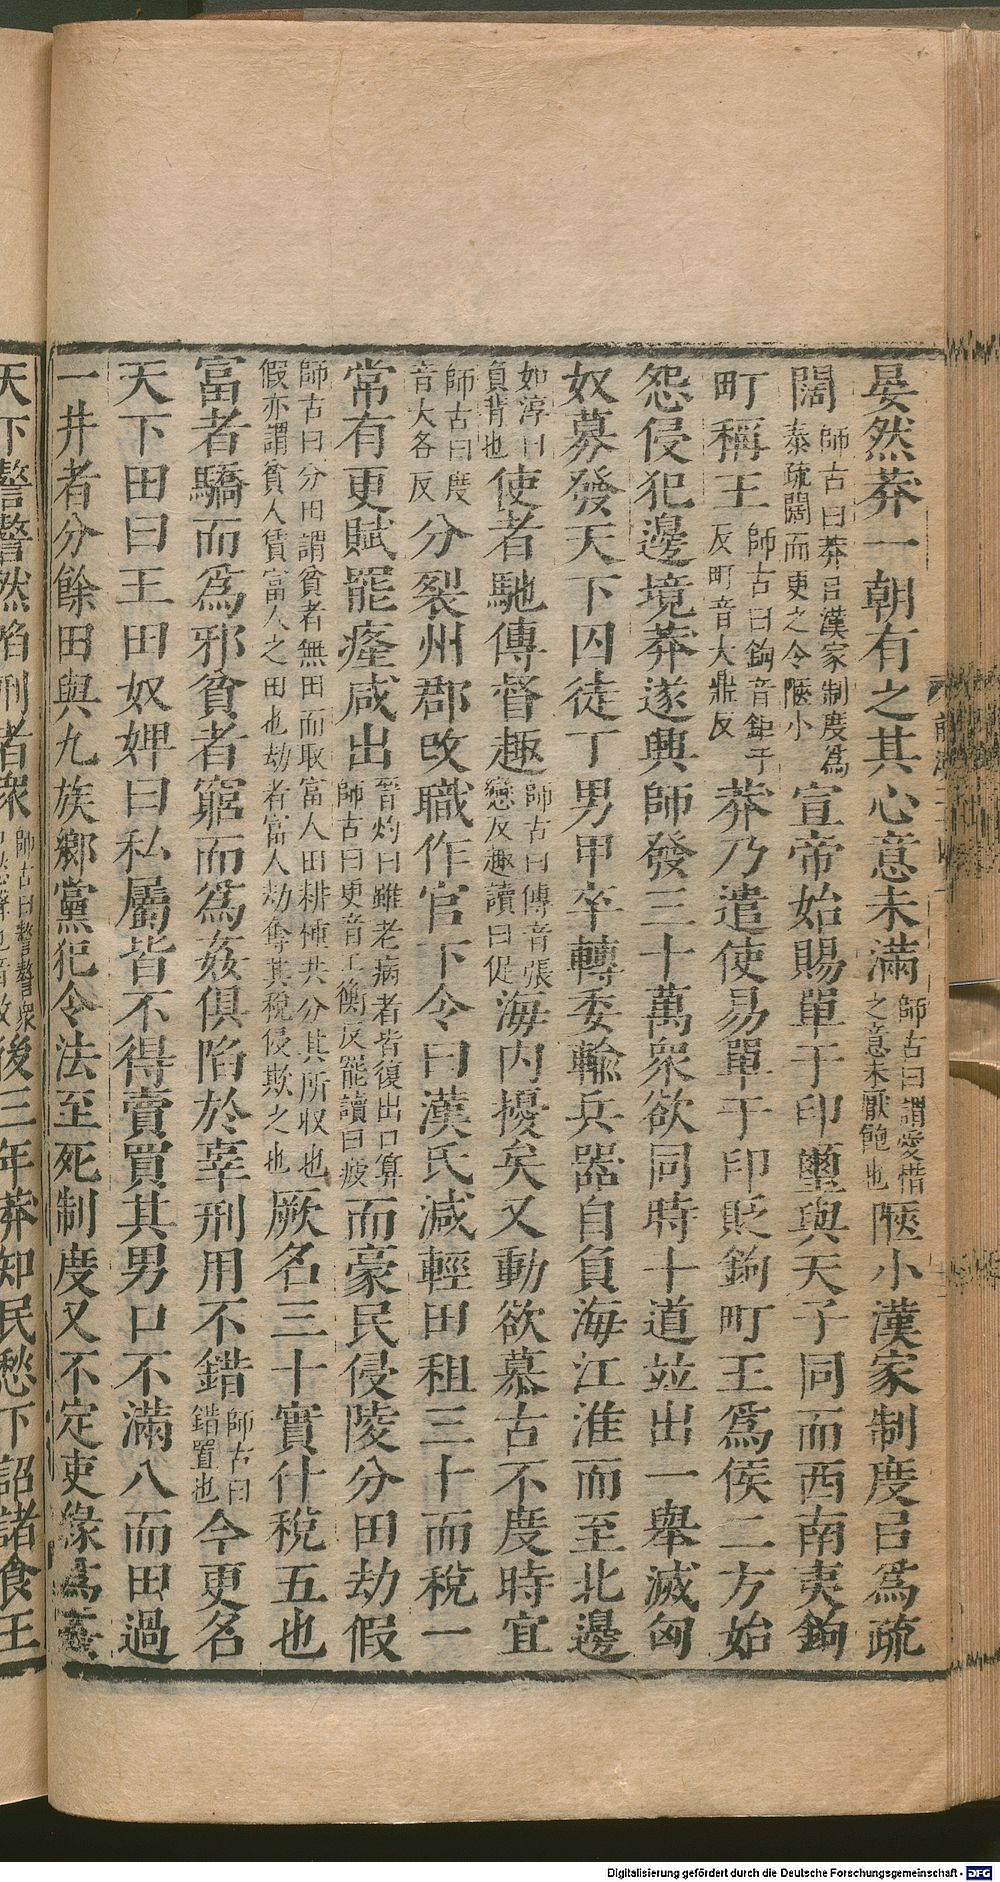 晏然莽一朝有之其心意未滿師古曰謂愛惜之意未厭飽也陿小漢家制度㠯爲疏
闊師古曰莽㠯漢家制度爲泰疏闊而更之令陿小宣帝始賜單于印璽與天子同而西南夷鉤
町稱王師古曰鉤音鉅于反町音大鼎反莽乃遣使易單于印貶鉤町王爲侯二方始
怨侵犯邊境莽遂興師發三十萬衆欲同時十道並出一舉滅匈
奴募發天下囚徒丁男甲卒轉委輸兵器自負海江淮而至北邊
如淳曰負背也使者馳傳督趣師古曰傳音張戀反趣讀曰促海内擾矣又動欲慕古不度時宜
師古曰度音大各反分裂州郡改職作官下令曰漢氏減輕田租三十而稅一
常有更賦罷癃咸出晉灼曰雖老病者皆復出口算師古曰更音工衡反罷讀曰疲而豪民侵陵分田劫假
師古曰分田謂貧者無田而取富人田耕種共分其所収也假亦謂貧人賃富人之田也劫者富人劫奪其稅侵欺之也厥名三十實什稅五也
富者驕而爲邪貧者窮而爲姦俱陷於辜刑用不錯師古曰錯置也今更名
天下田曰王田奴婢曰私屬皆不得賣買其男口不滿八而田過
一井者分餘田與九族鄉黨犯令法至死制度又不定吏緣爲姦
天下謷謷然陷刑者衆師古曰謷謷衆後三年莽知民愁下詔諸食王
Digitalisierung gefördert durch die Deutsche Forschungsgemeinschaft - DFG